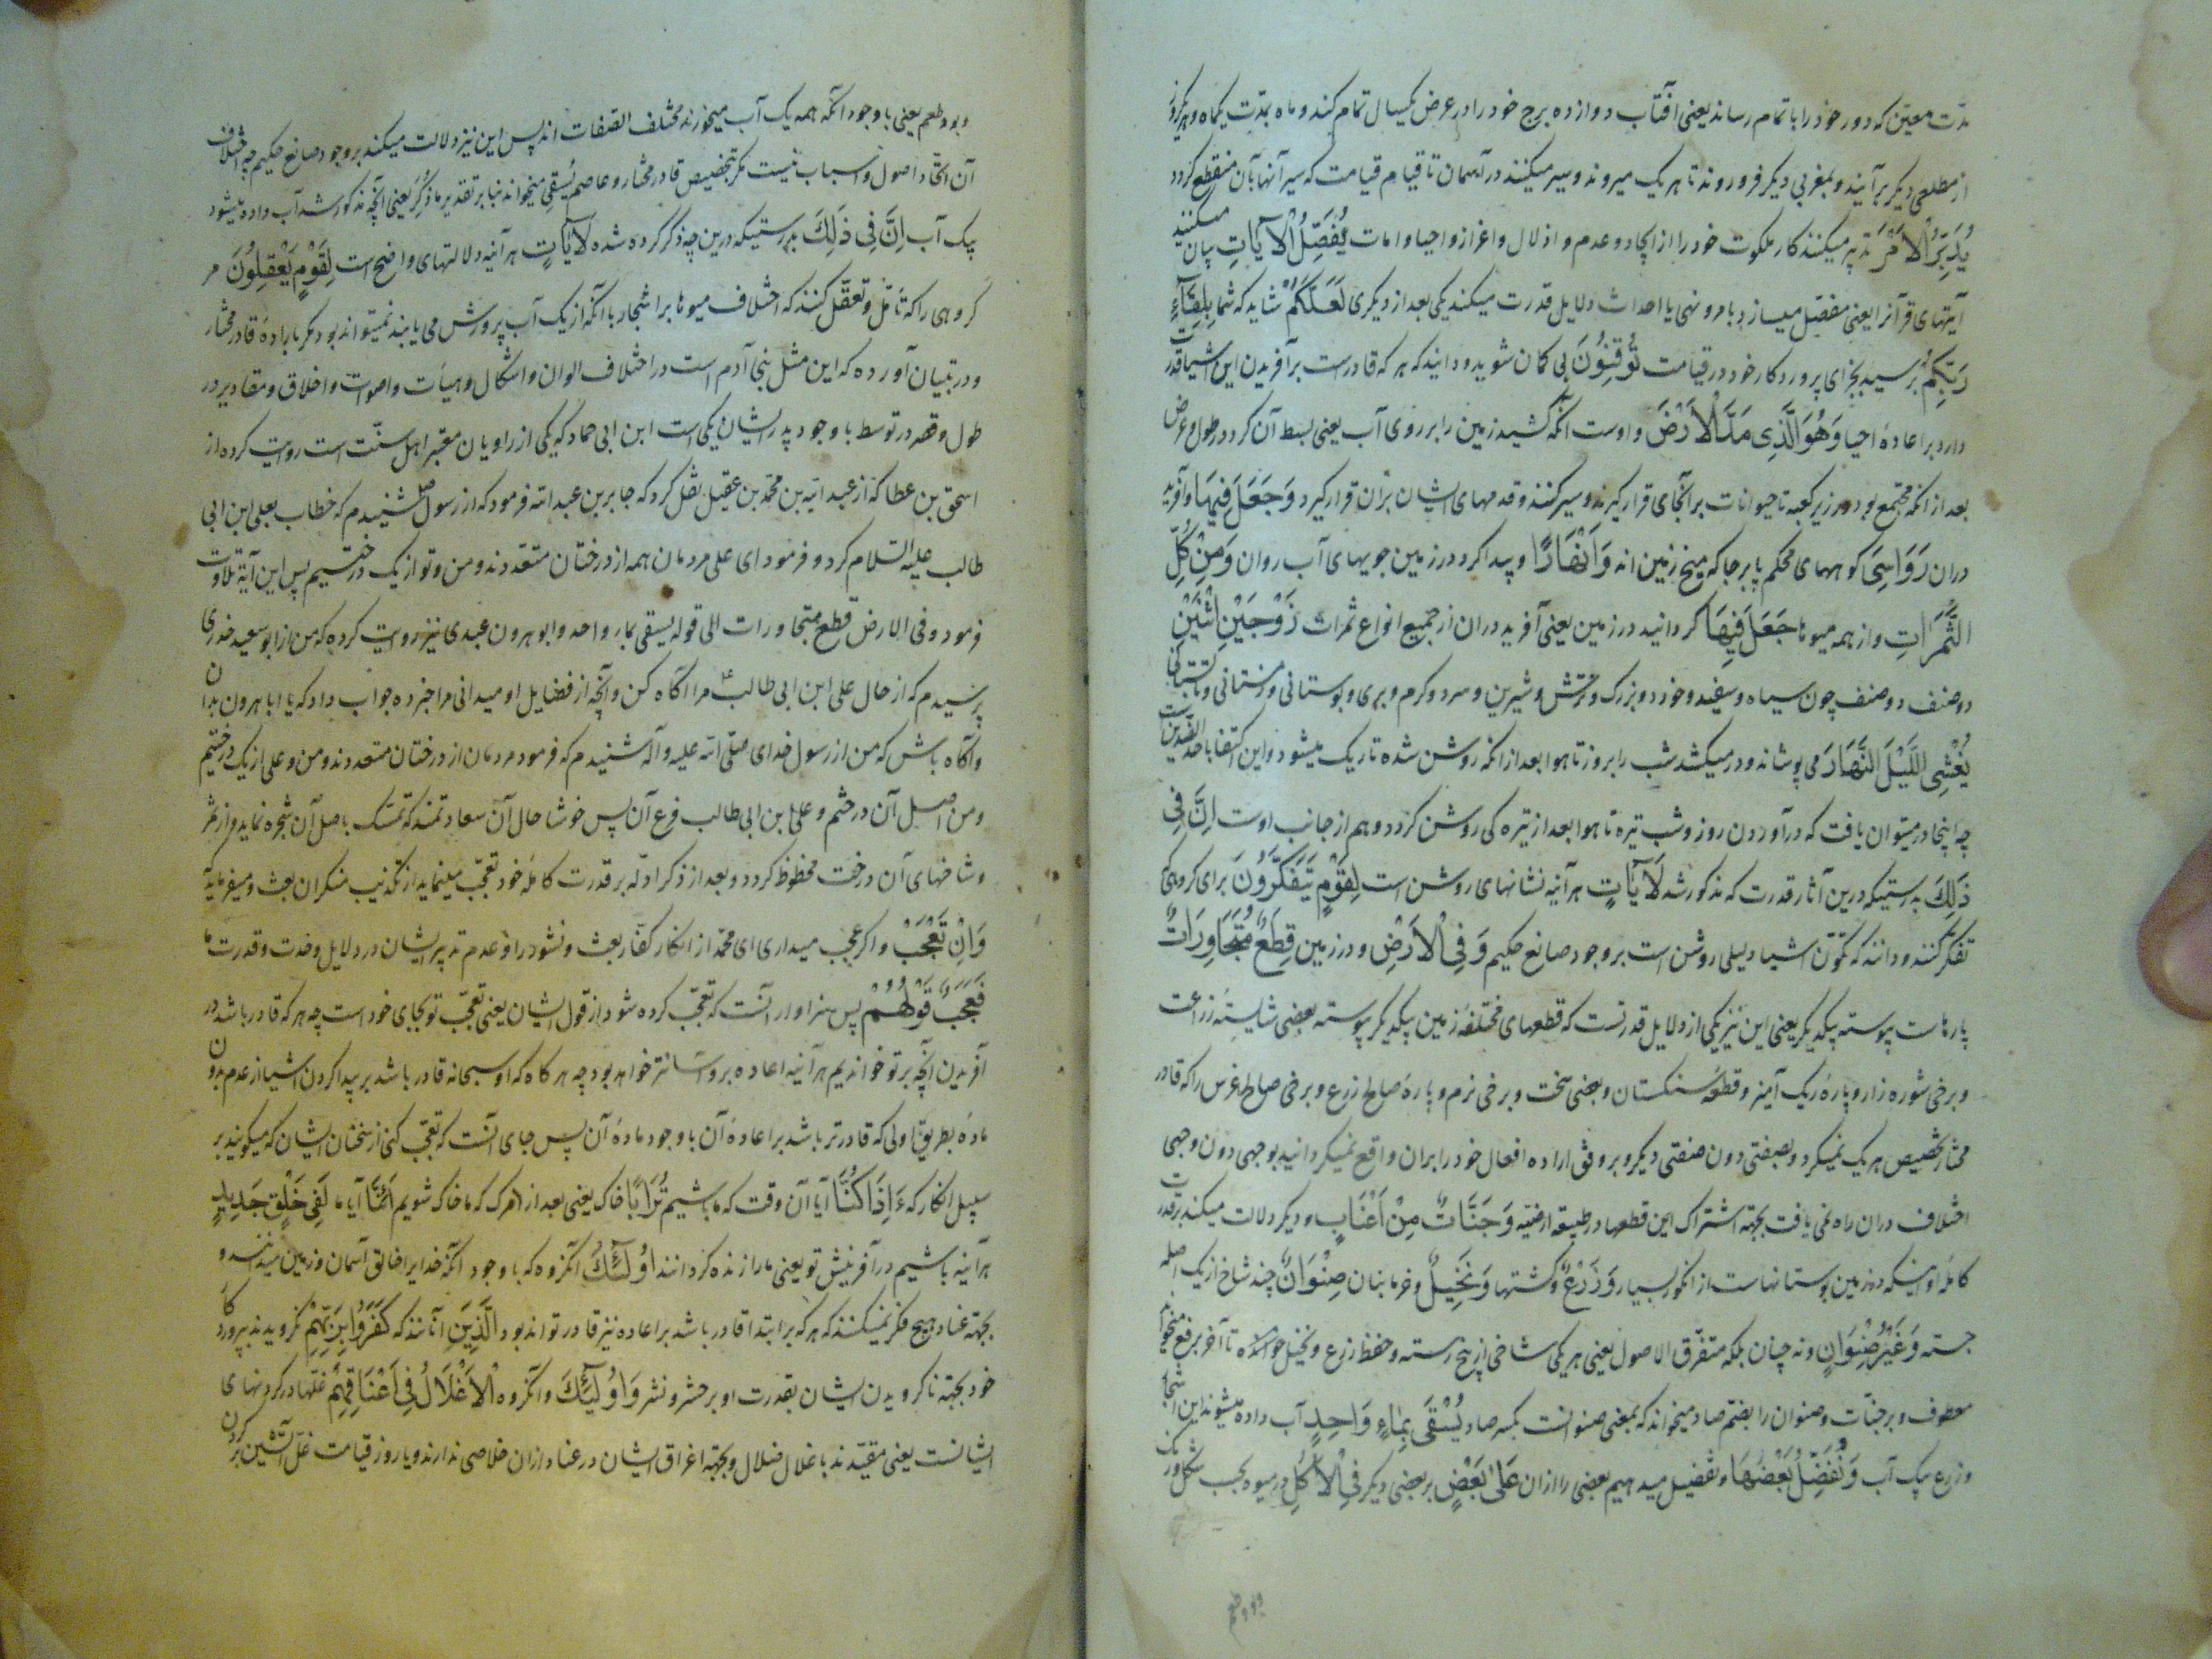 مدّت معیّن که دور خود را باتمام رساند یعنی آفتاب دوازده برج خود را در عرض یکسال تمام کند و ماه بمدّت یکماه و هر روز
از مطلعی دیگر برآیند و بمغربی دیگر فرو روند تا هر یک میروند و سیر میکنند در آسمان تا قیام قیامت که سیر آنها بآن منقطع کردد
یُدَبِّرُ الْاَمْرَ تدبیر میکند کار ملکوت خود را از ایجاد و عدم و اذلال و اعزاز و احیا و امات یُفَصِّلُ الْآیَاتِ بیان میکند
آیتهای قرآنرا یعنی مفصّل میسازد بامر و نهی یا احداث دلایل قدرت میکند یکی بعد از دیکری لَعَلَّکُمْ شاید که شما بِلِقَآءِ
رَبِّکُمْ برسید بجزای پروردکار خود در قیامت تُوقِنُونَ بی کمان شوید و دانید که هر که قادرست برآفریدن این اشیا قدرت
دارد بر اعادهٔ احیا وَهُوَ الَّذِی مَدَّ الْاَرْضَ و اوست آنکه کشید زمین را بر روی آب یعنی بسط آن کرد در طول و عرض
بعد از آنکه مجتمع بود در زیر کعبه تا حیوانات بر آنجای قرار کیرند و سیر کنند و قدمهای ایشان بران قرار کیرد وَجَعَلَ فِیهَا و آفرید
دران رَوَاسِیَ کوههای محکم پابرجا که میخ زمین اند وَاَنْهَارًا و پیدا کرد در زمین جویهای آب روان وَمِنْ کُلِّ
الثَّمَرَاتِ و از همه میوها جَعَلَ فِیهَا کردانید در زمین یعنی آفرید دران از جمیع انواع ثمرات زَوْجَیْنِ اثْنَیْنِ
دو صنف دو صنف چون سیاه و سفید و خورد و بزرک و ترش و شیرین و سرد و کرم و بری و بوستانی و زمستانی و تابستانی
یُغْشِی اللَّیْلَ النَّهَارَ می پوشاند و در میکشد شب را بروز تا هوا بعد از آنکه روشن شده تاریک میشود و این اکتفا باحد الضدین است
چه اینجا در میتوان یافت که درآوردن روز و شب تیره تا هوا بعد از تیره کی روشن کردد و هم از جانب اوست اِنَّ فِی
ذَلِکَ بدرستیکه درین آثار قدرت که مذکور شد لَآیَاتٍ هر آینه نشانهای روشن است لِقَوْمٍ یَتَفَکَّرُونَ برای کروهی که
تفکّر کنند و دانند که تکوّن اشیا دلیلی روشن است بر وجود صانع حکیم وَفِی الْاَرْضِ و در زمین قِطَعٌ مُتَجَاوِرَاتٌ
پارهاست پیوسته بیکدیکر یعنی این نیز یکی از دلایل قدرتست که قطعهای مختلفهٔ زمین بیکدیکر پیوسته بعضی شایستهٔ زراعت
و برخی شوره زار و پارهٔ ریک آمیز و قطعهٔ سنکستان و بعضی سخت و برخی نرم و پارهٔ صالح زرع و برخی صالح غرس را که قادر
مختار تخصیص هر یک نمیکرد و بصفتی دون صفتی دیکر و بر وفق اراده افعال خود را بران واقع نمیکردانید بوجهی دون وجهی
اختلاف دران راه نمی یافت بجهة اشتراک این قطعها در طبیعهٔ ارضیّه وَجَنَّاتٌ مِنْ اَعْنَابٍ و دیکر دلالت میکند بر قدرت
کاملهٔ او اینکه در زمین بوستانهاست از انکور بسیار وَزَرْعٌ و کشتها وَنَخِیلٌ و خرما بنان صِنْوَانٌ چند شاخ از یک اصل
جسته وَغَیْرُ صِنْوَانٍ و نه چنان بلکه متفرّق الاصول یعنی هر یکی شاخی از بیخ رسته و حفظ زرع و نخیل خوانده تا آخر برفع میخواند
معطوف بر جنّات و صنوان را بضمّ صاد میخواند که بمعنی صنوانست بکسر صاد یُسْقَی بِمَاءٍ وَاحِدٍ آب داده میشوند این اشجار
و زرع بیک آب وَنُفَضِّلُ بَعْضَهَا و تفضیل میدهیم بعضی را ازان عَلَی بَعْضٍ بر بعضی دیکر فِی الْاُکُلِ در میوه بحسب شکل و رنک
و بو و طعم
و بو و طعم یعنی با وجود آنکه همه یک آب میخورند مختلف الصفات اند پس این نیز دلالت میکند بر وجود صانع حکیم چه اختلاف
آن اتحّاد اصول و اسباب نیست مکر بتخصیص قادر مختار و عاصم یُسقی میخواند بنا بر تقدیر ماذُکِرَ یعنی آنچه مذکور شد آب داده میشود
بیک آب اِنَّ فِی ذَلِکَ بدرستیکه درین چه ذکر کرده شده لَآیَاتٍ هر آینه دلالتهای واضح است لِقَوْمٍ یَعْقِلُونَ مر
کروهی را که تأمّل و تعقّل کنند که اختلاف میوها بر اشجار با آنکه از یک آب پرورش می یابند نمیتواند بود مکر بارادهٔ قادر مختار
و در تبیان آورده که این مثل بنی آدم است در اختلاف الوان و اشکال و هیأت و اصوات و اخلاق و مقادیر در
طول و قصر و توسط با وجود پدر ایشان یکی است ابن ابی حماد که یکی از راویان معتبر اهل سنّت است روایت کرده از
اسحق بن عطا که از عبد الله بن محمّد بن عقیل نقل کرد که جابر بن عبد الله فرمود که از رسول ص شنیدم که خطاب بعلی ابن ابی
طالب علیه السّلام کرد و فرمود ای علی مردمان همه از درختان متعدّدند و من و تو از یک درختیم پس این آیة تلاوت
فرمود و فی الارض قطع متجاورات الی قوله یسقی بماء واحد و ابو هرون عبدی نیز روایت کرده که من از ابو سعید خدری
پرسیدم که از حال علی ابن ابی طالب ع مرا آکاه کن و آنچه از فضایل او میدانی مرا خبر ده جواب داد که یا ابا هرون بدان
و آکاه باش که من از رسول خدای صلّی الله علیه و آله شنیدم که فرمود مردمان از درختان متعددند و من و علی از یک درختیم
و من اصل آن درختم و علی ابن ابی طالب فرع آن پس خوشا حال آن سعادتمند که تمسّک باصل آن شجره نماید و از ثمر
و شاخهای آن درخت محظوظ کردد و بعد از ذکر ادلّه بر قدرت کاملهٔ خود تعجّب مینماید از تکذیب منکران بعث و میفرماید که
وَاِنْ تَعْجَبْ و اکر عجب میداری ای محمّد از انکار کفّار بعث و نشور را و عدم تدبیر ایشان در دلایل وحدت و قدرت ما
فَعَجَبٌ قَوْلُهُمْ پس سزاوار آنست که تعجّب کرده شود از قول ایشان یعنی تعجّب تو بجای خود است چه هر که قادر باشد در
آفریدن آنچه بر تو خواندیم هر آینه اعاده برو آسانتر خواهد بود چه هرکاه که او سبحانه قادر باشد بر پیدا کردن اشیا از عدم بدون
مادّه بطریق اولی که قادرتر باشد بر اعادهٔ آن با وجود مادهٔ آن پس جای آنست که تعجّب کنی از سخنان ایشان که میکویند بر
سبیل انکار که ءَاِذَا کُنَّا آیا آن وقت که ما باشیم تُرَابًا خاک یعنی بعد از مرک که ما خاک شویم اَئِنَّا آیا ما لَفِی خَلْقٍ جَدِیدٍ
هر آینه باشیم در آفرینش نو یعنی ما را زنده کردانند اُولَئِکَ آنکروه که با وجود آنکه خدایرا خالق آسمان و زمین میدانند و
بجهة عناد هیچ فکر نمیکنند که هر که بر ابتدا قادر باشد بر اعاده نیز قادر تواند بود الَّذِینَ آنانند که کَفَرُوا بِرَبِّهِمْ نکرویدند بپروردکار
خود بجهة ناکرویدن ایشان بقدرت او بر حشر و نشر وَاُولَئِکَ و آنکروه الْاَغْلَالُ فِی اَعْنَاقِهِمْ غلّها در کردنهای
ایشانست یعنی مقیّدند باغلال ضلال و بجهة اغراق ایشان در عناد ازان خلاصی ندارند و یا روز قیامت غلّ آتشین بر کردن